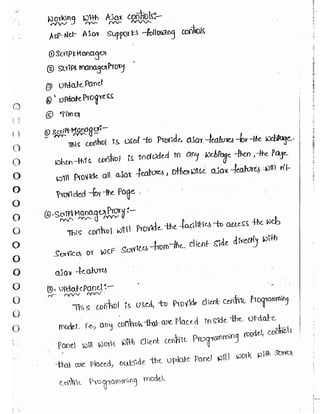 Working With Ajax controls:-
ASP.Net Ajax Supports following controls
① ScriptManager
② ScriptManagerProxy
③ UpdatePanel
④ UpdateProgress
⑤ Timer
① ScriptManager:-
This control is used to Provide, ajax features for the webPage.
when this control is included in any webPage then, the Page
will Provide all ajax features, otherwise ajax features will n't
Provided for the Page.
②. ScriptManagerProxy:-
This control will Provide the facilities to access the web
Services or WCF Services from the client side directly with
ajax features
③. UpdatePanel:-
This control is used, to Provide client centric Programming
model. i.e, any controls that are Placed inside the update
Panel will work with client centric Programming model, controls
that are Placed, outside the update Panel will work with Server
centric Programming model.